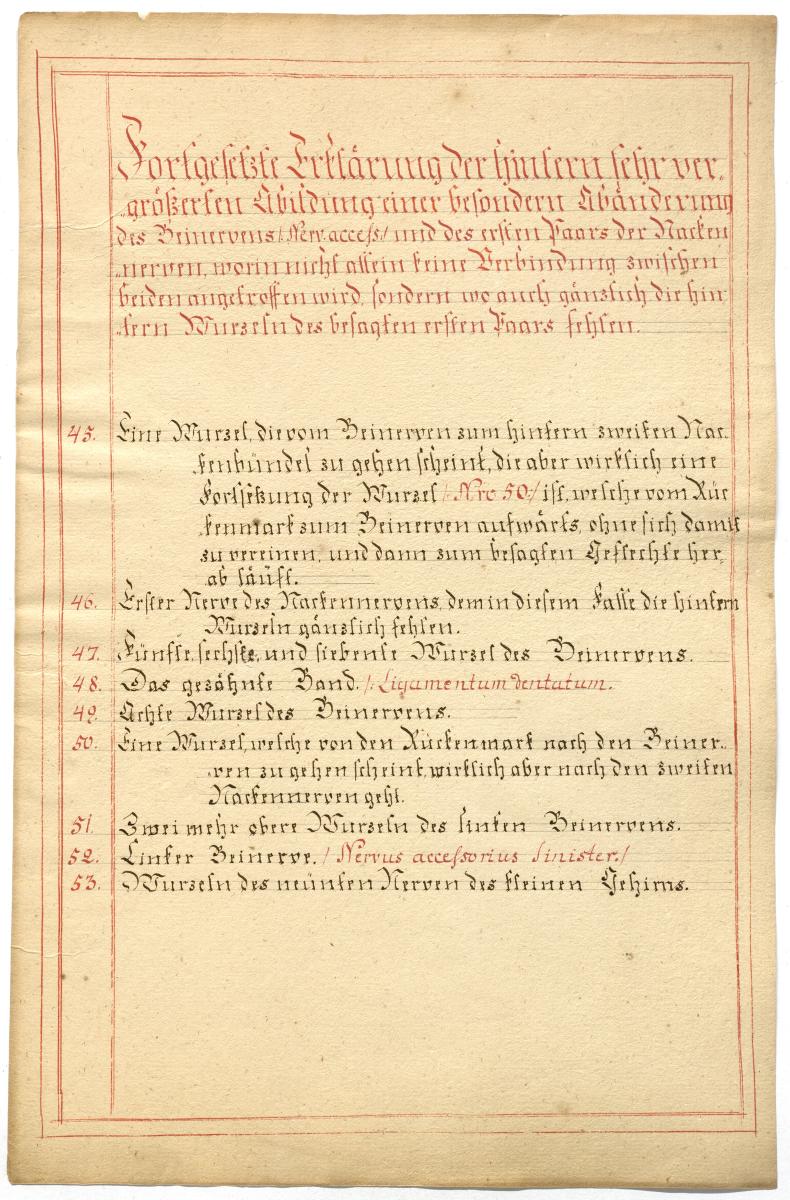 Fortgesetzte Erklärung der hintern sehr ver„
„größerten Abildung einer besondern Abänderung
des Beinervens /: Nerv. access:/ und des ersten Paars der Nacken
„nerven, worin nicht allein keine Verbindung zwischen
beiden angetroffen wird, sondern wo auch gänzlich die hin
„tern Wurzeln des besagten ersten Paars fehlen.
45. Eine Wurzel, die vom Beinerven zum hintern zweiten Nac„
kenbündel zu gehen scheint, die aber wirklich eine
Fortsetzung der Wurzel /: Nro 50:/ ist, welche vom Rüc
kenmark zum Beinerven aufwärts, ohne sich damit
zu vereinen, und dann zum besagten Geflechte her„
ab läuft.
46. Erster Nerve des Nackennervens, dem in diesem Falle die hintern
Wurzeln gänzlich fehlen.
47. Fünfte, sechste, und siebente Wurzel des Beinervens.
48. Das gezähnte Band. /: Ligamentum dentatum.
49. Achte Wurzel des Beinervens.
50. Eine Wurzel, welche von den Rückenmark nach den Beiner„
„ven zu gehen scheint, wirklich aber nach den zweiten
Nackennerven geht.
51. Zwei mehr obere Wurzeln des linken Beinervens.
52. Linker Beinerve. / Nervus accessorius sinister:/
53. Wurzeln des neünten Nerven des kleinen Gehirns.